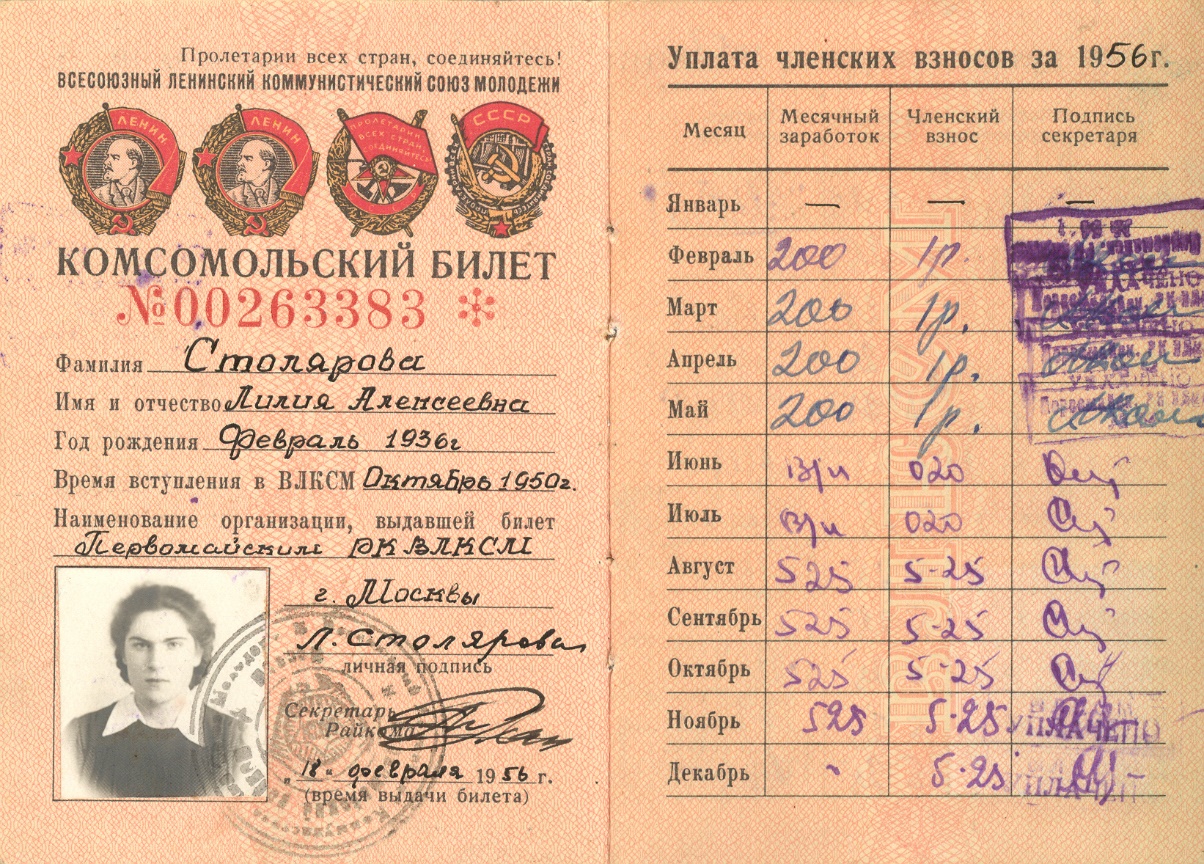 Пролетарии всех стран, соединяйтесь!
ВСЕСОЮЗНЫЙ ЛЕНИНСКИЙ КОММУНИСТИЧЕСКИЙ СОЮЗ МОЛОДЕЖИ
ЛЕНИН
ЛЕНИН
ПРОЛЕТАРИИ ВСЕХ СТРАН, СОЕДИНЯЙТЕСЬ
СССР
КОМСОМОЛЬСКИЙ БИЛЕТ
№00263383
Фамилия Столярова
Имя и отчество Лилия Алексеевна
Год рождения Февраль 1936г
Время вступления в ВЛКСМ Октябрь 1950г.
Наименование организации, выдавшей билет
Первомайским РК ВЛКСМ
г. Москвы
Л. Столярова
личная подпись
Секретарь
Райкома
"18" февраля 1956 г.
(время выдачи билета)
Уплата членских взносов за 1956г.
Месяц Месячный заработок Членский взнос Подпись секретаря
Январь — — —
Февраль 200 1р.
Март 200 1р.
Апрель 200 1р.
Май 200 1р.
Июнь в/и 020
Июль в/и 020
Август 525 5-25
Сентябрь 525 5-25
Октябрь 525 5-25
Ноябрь 525 5-25 УПЛАЧЕНО
Декабрь 5-25